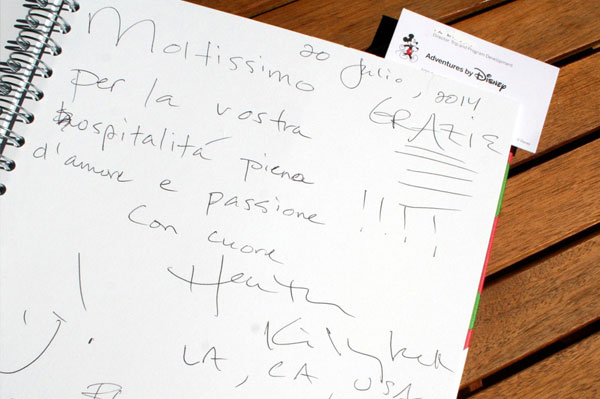 20 Julio, 2014
Moltissimo GRAZIE
per la vostra
hospitalitá piena
d'amore e passione !!!!
con cuore
LA, CA, USA
Adventures by Disney